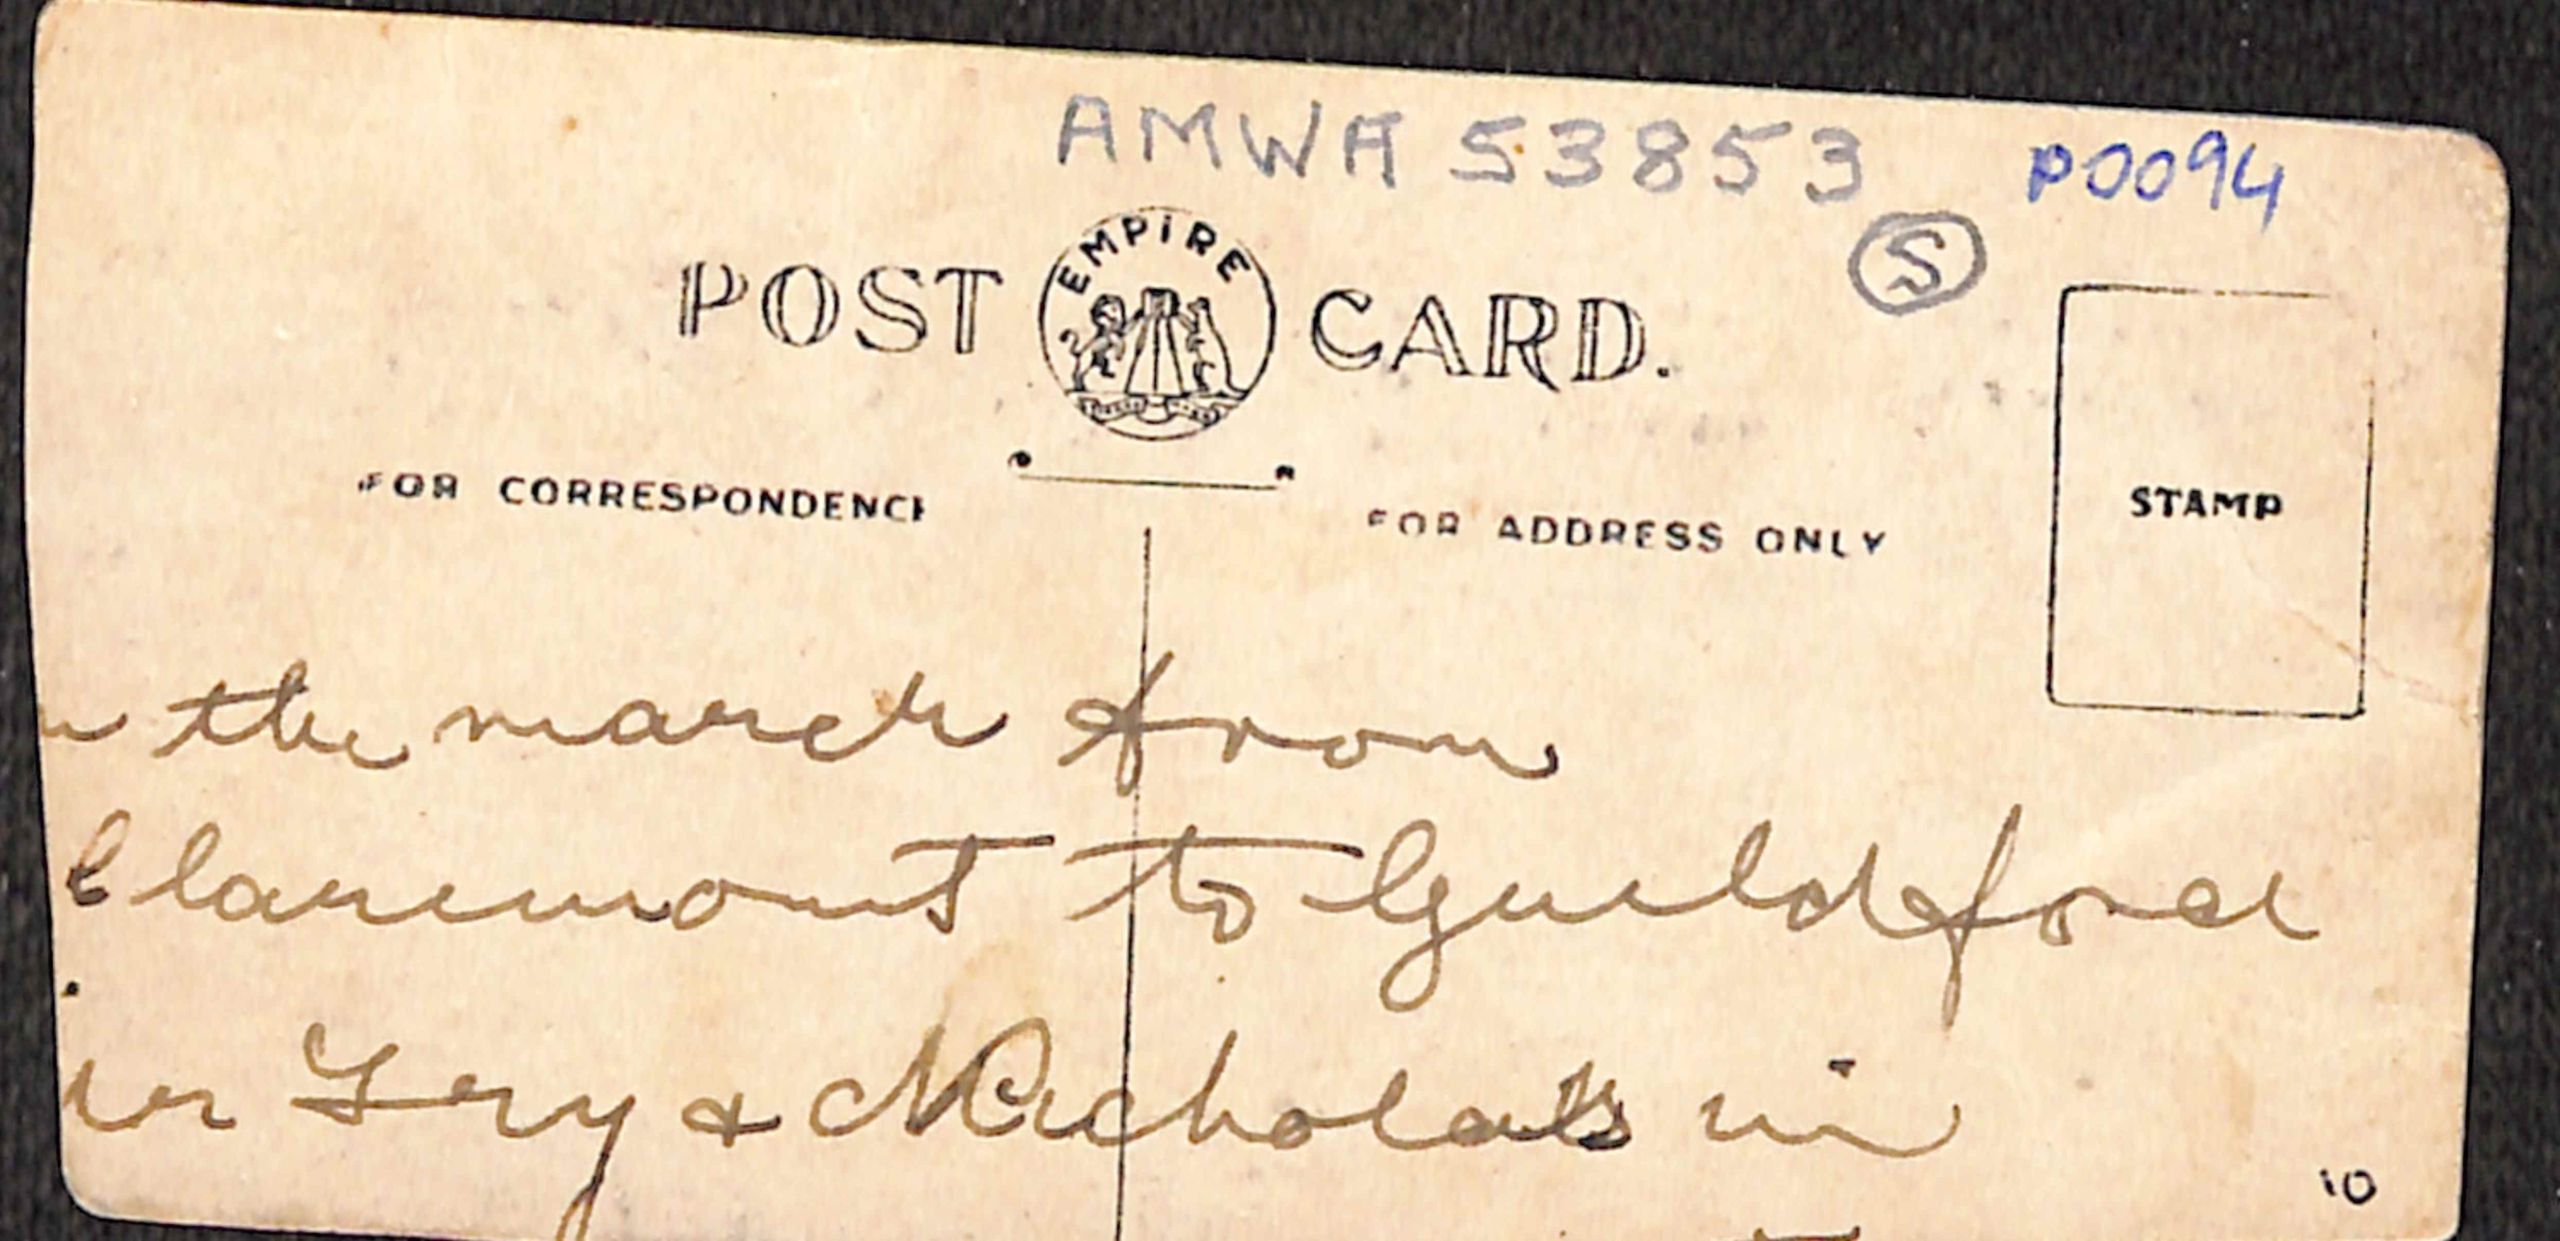 AMWA 53853
P0094
S
POST EMPIRE CARD.
FOR CORRESPONDENCE
FOR ADDRESS ONLY
STAMP
the march from
Claremont to Guildford
& Nicholas in
10